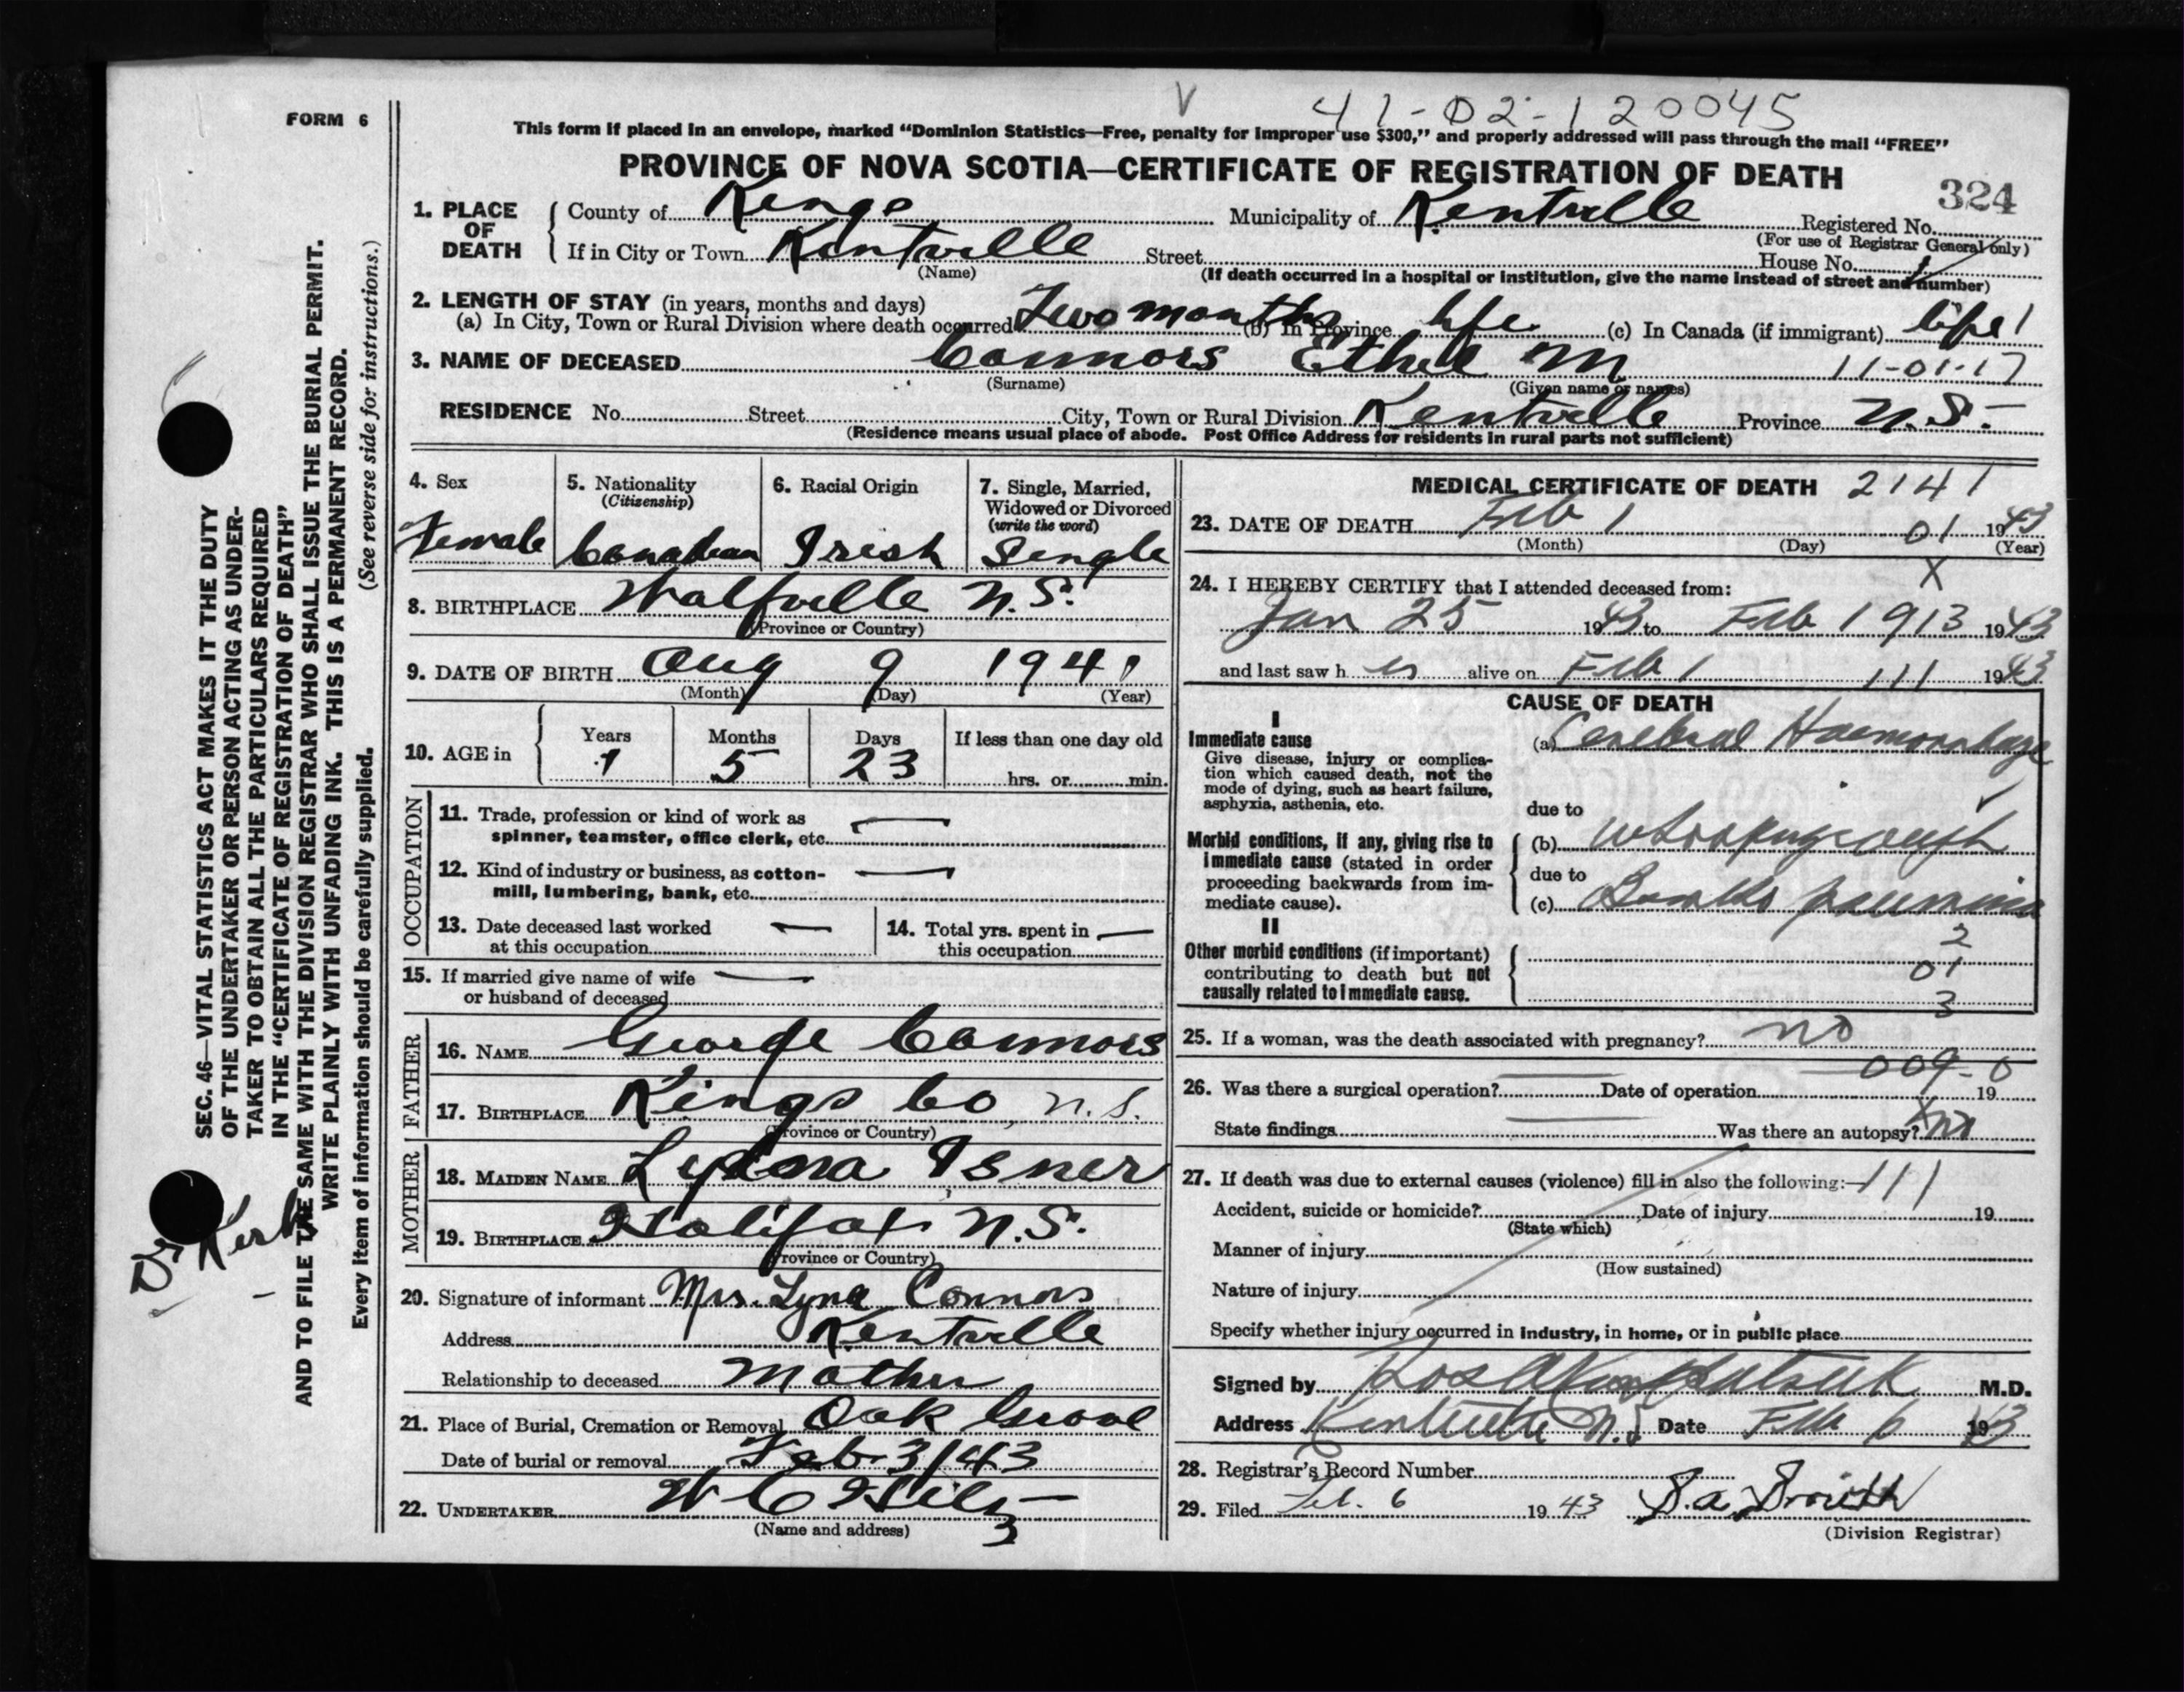 FORM 6
V 41-02-120045
This form if placed in an envelope, marked “Dominion Statistics—Free, penalty for improper use $300,” and properly addressed will pass through the mail “FREE”
PROVINCE OF NOVA SCOTIA—CERTIFICATE OF REGISTRATION OF DEATH
324
1. PLACE OF DEATH
County of Kings Municipality of Kentville Registered No.
(For use of Registrar General only)
If in City or Town Kentville Street House No.
(Name) (If death occurred in a hospital or institution, give the name instead of street and number)
2. LENGTH OF STAY (in years, months and days)
(a) In City, Town or Rural Division where death occurred Two months (b) In Province life (c) In Canada (if immigrant) life 1
3. NAME OF DECEASED Connors Ethel M 11-01-17
(Surname) (Given name or names)
RESIDENCE No. Street City, Town or Rural Division Kentville Province N.S.
(Residence means usual place of abode. Post Office Address for residents in rural parts not sufficient)
4. Sex
Female
5. Nationality
(Citizenship)
Canadian
6. Racial Origin
Irish
7. Single, Married,
Widowed or Divorced
(write the word)
Single
8. BIRTHPLACE Wolfville N.S.
(Province or Country)
9. DATE OF BIRTH Aug 9 1941
(Month) (Day) (Year)
10. AGE in
Years Months Days If less than one day old
1 5 23 hrs. or min.
OCCUPATION
11. Trade, profession or kind of work as
spinner, teamster, office clerk, etc. —
12. Kind of industry or business, as cotton-
mill, lumbering, bank, etc. —
13. Date deceased last worked
at this occupation —
14. Total yrs. spent in
this occupation —
15. If married give name of wife
or husband of deceased —
FATHER
16. NAME George Connors
17. BIRTHPLACE Kings Co, N.S.
(Province or Country)
MOTHER
18. MAIDEN NAME Isner
19. BIRTHPLACE Halifax N.S.
(Province or Country)
20. Signature of informant Mrs. Lyna Connors
Address Kentville
Relationship to deceased Mother
21. Place of Burial, Cremation or Removal Oak Grove
Date of burial or removal Feb 3/43
22. UNDERTAKER W C
(Name and address) 3
MEDICAL CERTIFICATE OF DEATH 2141
23. DATE OF DEATH Feb 1 01 1943
(Month) (Day) (Year)
X
24. I HEREBY CERTIFY that I attended deceased from:
Jan 25 1943 to Feb 1 913 1943
and last saw her alive on Feb 1 111 1943
CAUSE OF DEATH
I
Immediate cause
Give disease, injury or complica-
tion which caused death, not the
mode of dying, such as heart failure,
asphyxia, asthenia, etc.
(a) Cerebral Haemorrhage
due to
Morbid conditions, if any, giving rise to
immediate cause (stated in order
proceeding backwards from im-
mediate cause).
(b) whooping cough
due to
(c) Broncho pneumonia
II
Other morbid conditions (if important)
contributing to death but not
causally related to immediate cause.
2
01
3
25. If a woman, was the death associated with pregnancy? no
009-0
26. Was there a surgical operation? — Date of operation 19
State findings — Was there an autopsy? X no
27. If death was due to external causes (violence) fill in also the following:— 111
Accident, suicide or homicide? Date of injury 19
(State which)
Manner of injury
(How sustained)
Nature of injury
Specify whether injury occurred in industry, in home, or in public place
Signed by M.D.
Address Kentville N.S. Date Feb 6 1943
28. Registrar's Record Number
29. Filed Feb. 6 1943
(Division Registrar)
SEC. 46—VITAL STATISTICS ACT MAKES IT THE DUTY
OF THE UNDERTAKER OR PERSON ACTING AS UNDER-
TAKER TO OBTAIN ALL THE PARTICULARS REQUIRED
IN THE “CERTIFICATE OF REGISTRATION OF DEATH”
AND TO FILE THE SAME WITH THE DIVISION REGISTRAR WHO SHALL ISSUE THE BURIAL PERMIT.
WRITE PLAINLY WITH UNFADING INK. THIS IS A PERMANENT RECORD.
Every item of information should be carefully supplied. (See reverse side for instructions.)
Dr